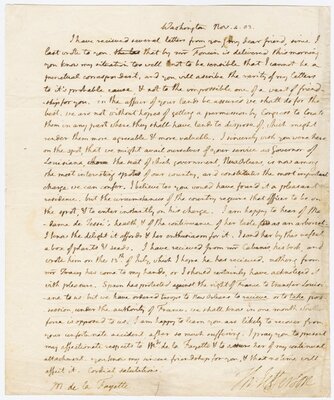 Washington Nov. 4. 03
I have recieved several letters from you, my dear friend, since I
last wrote to you that by mr Foncin is delivered this morning.
you know my situation too well not to be sensible that I cannot be a
punctual correspondent, and you will ascribe the rarity of my letters
to it's probable cause & not to the impossible one of a want of friend-
ship for you. in the affair of your lands be assured we shall do for the
best. we are not without hopes of getting a permission by Congress to locate
them in any part where they shall have lands to dispose of, which might
render them more agreeable & more valuable. I sincerely wish you were here
on the spot, that we might avail ourselves of your service as Governor of
Louisiana, the seat of which government, New Orleans is now among
the most interesting spots of our country, and constitutes the most important
charge we can confer. I believe too you would have found it a pleasant
residence. but the circumstances of the country require that officer to be on
the spot, & to enter instantly on his charge. I am happy to hear of Ma-
dame de Tessé's health & of the continuance of her taste
I know the delight it affords & her enthusiasm for it. I send her by this vessel
a box of plants & seeds. I have recieved from mr Cabanis his book, and
wrote him on the 12th of July, which I hope he has recieved. nothing from
mr Tracy has come to my hands, or I should certainly have acknoleged it
with pleasure. Spain has protested against the right of France to transfer Louisi-
ana to us but we have ordered troops to New Orleans to recieve or to take pos-
session under the authority of France. we shall know in one month whether
force is opposed to us. I am happy to learn you are likely to recover from
your unfortunate accident after so much suffering. I pray you to present
my affectionate respects to Mde. de la Fayette & to assure her of my continued
attachment. you know my sincere friendship for you, & that no time will
affect it. Cordial salutations.
Th: Jefferson
M. de la Fayette